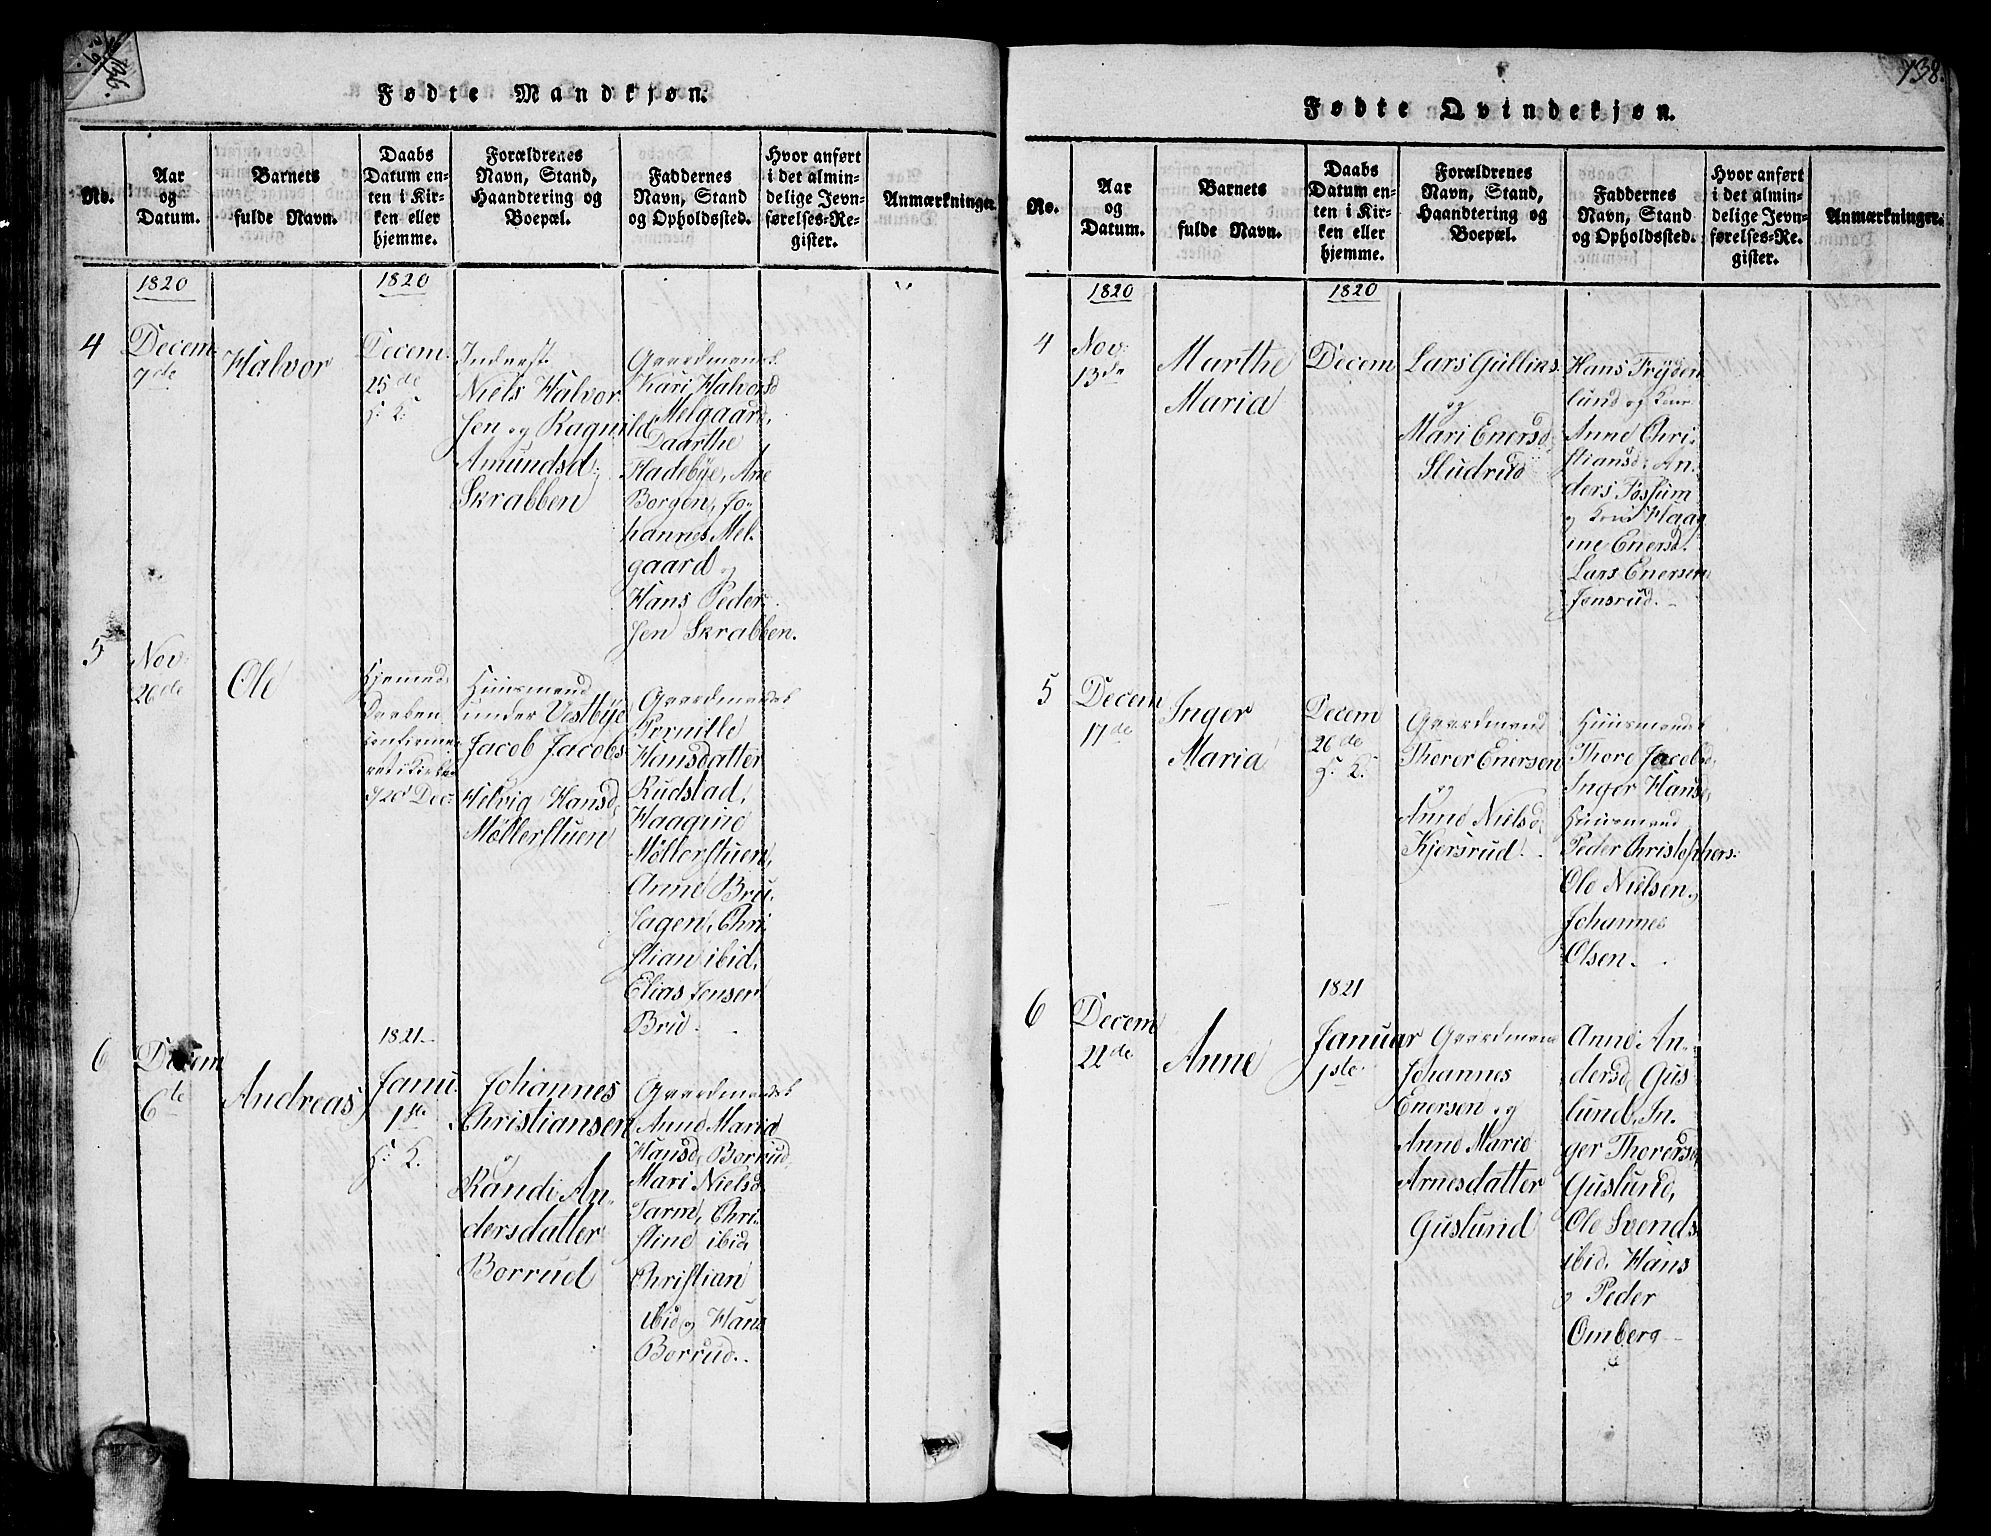 136.
Fødte Mandkjøn.
No.
Aar
og
Datum.
Barnets
fulde Navn.
Daabs
Datum en-
ten i Kir-
ken eller
hjemme.
Forældrenes
Navn, Stand,
Haandtering og
Boepæl.
Faddernes
Navn, Stand
og Opholdssted.
Hvor anført
i det almin-
delige Jevn-
førelses-Re-
gister.
Anmærkninger.
1820
1820
4
Decem
7de
Halvor
Decem:
25de
H. K.
Inderst
Niels Halvor
sen og Ragnild
Amundsd.
Skrabben
Gaardmandsk
Kari Halvorsd
Melgaard,
Daarthe
Fladebye, Ane
Borgen, Jo-
hannes Mel-
gaard og
Hans Peder-
sen Skrabben.
5
Nov:
26de
Ole
Hjemmed
Daaben
Confirme-
ret i Kirken
Dec:
Huusmand
under Vestbye
Jacob Jacobs
Helvig Hansd.
Møllerstuen
Gaardmandsk
Pernille
Hansdatter
Rudstad,
Haagine
Møllerstuen,
Anne Bru-
sagen, Chri-
stian ibid,
Elias Jensen
Brud.
6
Decem
6te
Andreas
1821
Janu
1ste
H. K.
Johannes
Christiansen
og
Randi An-
dersdatter
Borrud
Gaardmandsk
Anne Maria
Hansd. Borrud,
Mari Nielsd.
Tarm, Chri-
stine ibid,
Christian
ibid og Hans
Borrud.
138.
Fødte Qvindekjøn.
No.
Aar
og
Datum.
Barnets
fulde Navn.
Daabs
Datum en-
ten i Kir-
ken eller
hjemme.
Forældrenes
Navn, Stand,
Haandtering og
Boepæl.
Faddernes
Navn, Stand
og Opholdssted.
Hvor anført
i det almin-
delige Jevn-
førelses-Re-
gister.
Anmærkninger.
1820
1820
4
Nov:
13de
Marthe
Maria
Decem
Lars Gulliks.
og
Mari Enersd.
Sludrud
Hans Fryden
lund og Kone
Anne Chri-
stiansd. An-
ders Fossum
og Kone Haag
ine Enersd.
Lars Enersen
Jonsrud.
5
Decem
17de
Inger
Maria
Decem
26de
H. K.
Gaardmand
Thorer Enersen
og
Anne Nielsd.
Kjersrud.
Huusmandsk
Thore Jacobsd,
Inger Hansd,
Huusmand
Peder Christophers:
Ole Nielsen og
Johannes
Olsen.
6
Decem
22de
Anne
1821
Januar
1ste
Gaardmand
Johannes
Enersen og
Anne Marie
Arnesdatter
Guslund
Anne An-
dersd. Gus
lund, In-
ger Thorersd.
Guslund,
Ole Svends.
ibid, Hans
og Peder
Omberg